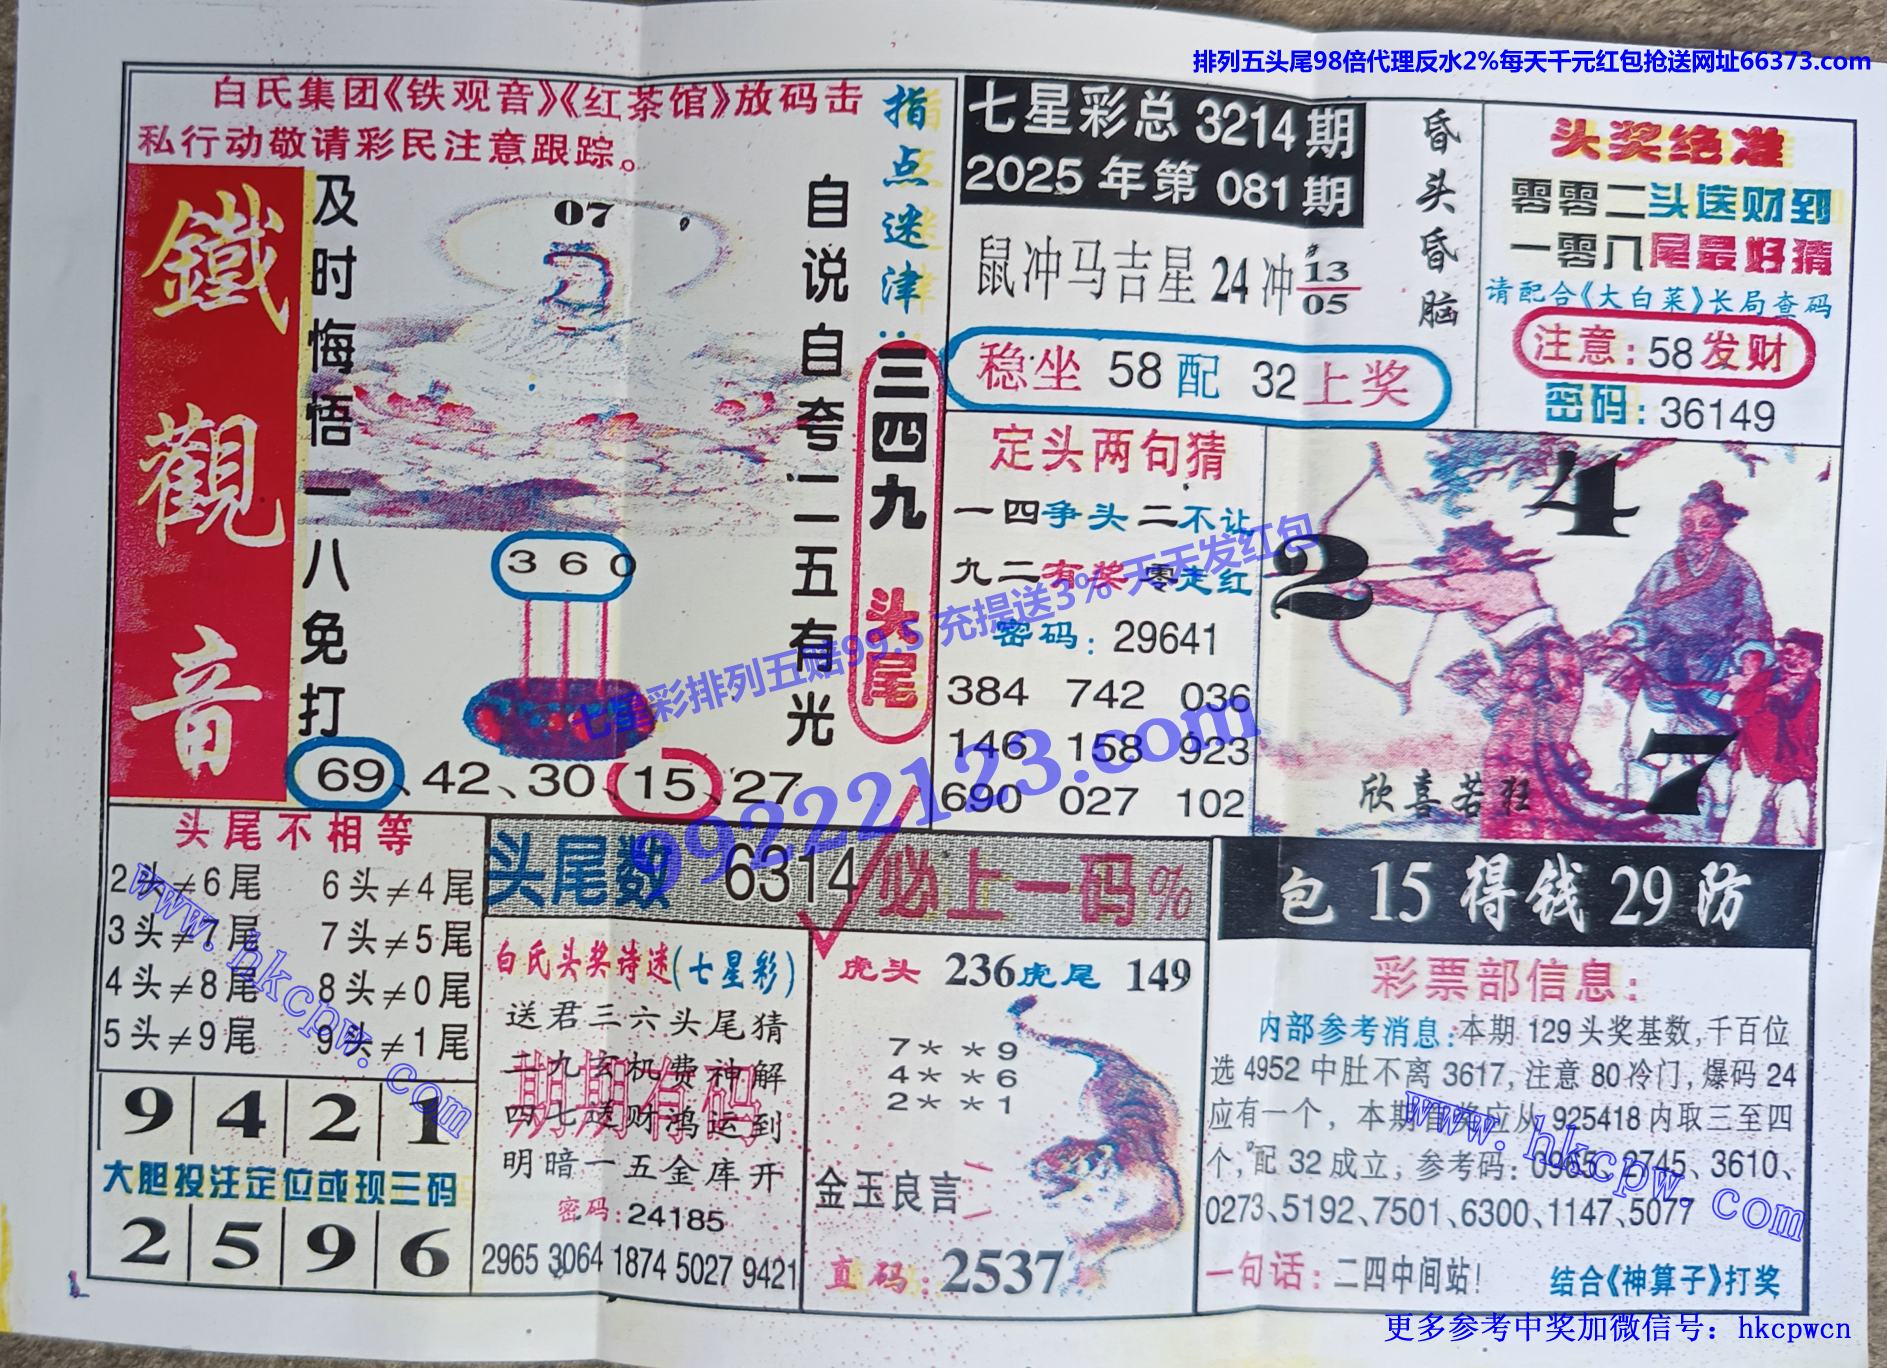 排列五头尾98倍代理反水2%每天千元红包抢送网址66373.com
白氏集团《铁观音》《红茶馆》放码击
私行动敬请彩民注意跟踪。
鐵觀音
及时悔悟一八免打
07
自说自夸二五有光
360
69、42、30、15、27
指点迷津:三四九 头尾
七星彩总 3214期
2025 年第 081期
鼠冲马吉星 24 冲 13
05
稳坐 58 配 32 上奖
昏头昏脑
头奖绝准
零零二头送财到
一零八尾最好猜
请配合《大白菜》长局查码
注意:58发财
密码:36149
定头两句猜
一四争头二不让
九二有奖零走红
密码:29641
384 742 036
146 158 923
690 027 102
4
2
7
欣喜若狂
七星彩排列五赔99.5 充提送3% 天天发红包
99222123.com
头尾不相等
2头≠6尾 6头≠4尾
3头≠7尾 7头≠5尾
4头≠8尾 8头≠0尾
5头≠9尾 9头≠1尾
www.hkcpw.com
9 4 2 1
大胆投注定位或现三码
2 5 9 6
头尾数 6314 必上一码%
白氏头奖诗迷(七星彩)
送君三六头尾猜
二九玄机费神解
四七送财鸿运到
明暗一五金库开
期期有码
密码:24185
2965 3064 1874 5027 9421
虎头 236 虎尾 149
7**9
4**6
2**1
金玉良言
直码:2537
包 15 得钱 29 防
彩票部信息:
内部参考消息:本期129头奖基数,千百位
选4952中肚不离3617,注意80冷门,爆码24
应有一个,本期首奖应从925418内取三至四
个,配32成立,参考码:0965、2745、3610、
0273、5192、7501、6300、1147、5077
www.hkcpw.com
一句话:二四中间站!
结合《神算子》打奖
更多参考中奖加微信号:hkcpwcn